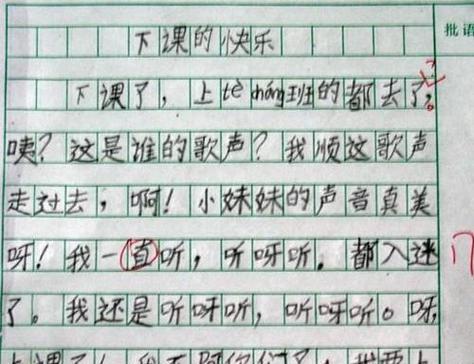 下课的快乐
批语
下课了，上tè cháng班的都去了。
咦？这是谁的歌声？我顺这歌声
走过去，啊！小妹妹的声音真美
呀！我一直听，听呀听，都入迷
了。我还是听呀听，听呀听。呀，
上课了！